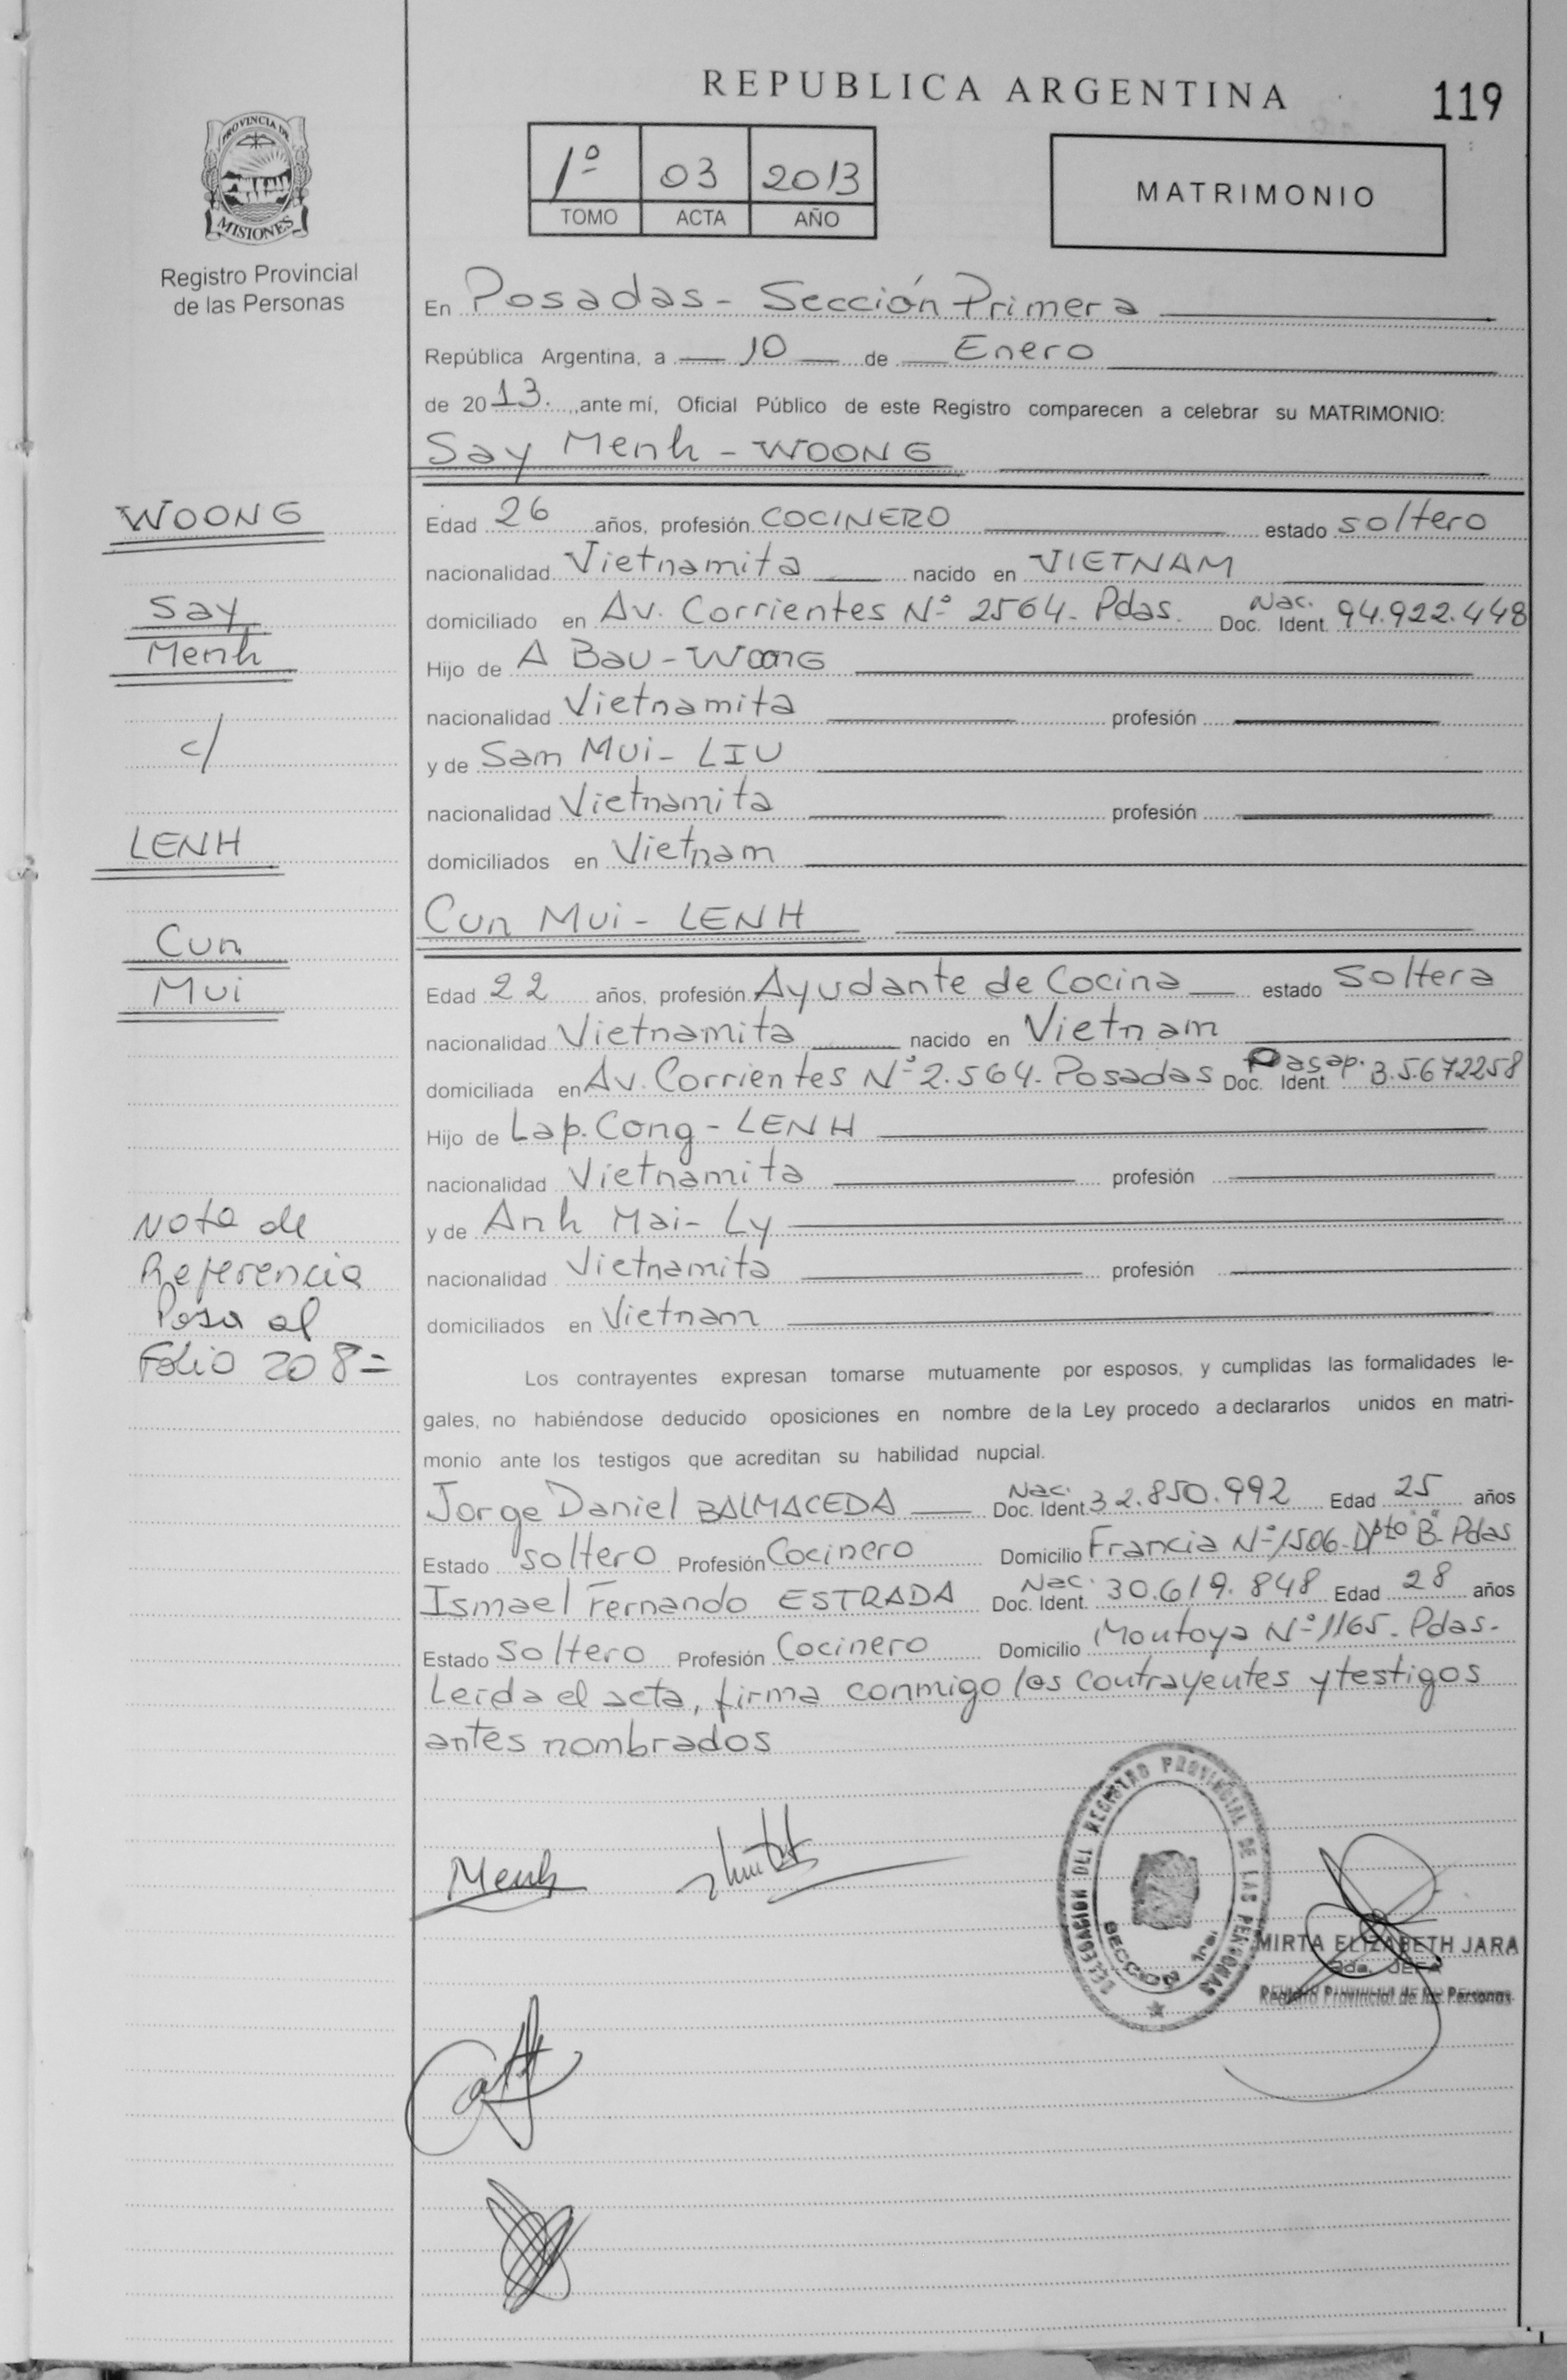 REPUBLICA ARGENTINA
119
PROVINCIA DE
MISIONES
Registro Provincial
de las Personas
1º 03 2013
TOMO ACTA AÑO
MATRIMONIO
En Posadas - Sección Primera
República Argentina, a 10 de Enero
de 20 13. ,ante mí, Oficial Público de este Registro comparecen a celebrar su MATRIMONIO:
Say Menh - WOONG
WOONG
Say
Menh
c/
LENH
Cun
Mui
Edad 26 años, profesión COCINERO estado soltero
nacionalidad Vietnamita nacido en VIETNAM
domiciliado en Av. Corrientes Nº 2564- Pdas. Nac. Doc. Ident. 94.922.448
Hijo de A Bau - WOONG
nacionalidad Vietnamita profesión
y de Sam Mui - LIU
nacionalidad Vietnamita profesión
domiciliados en Vietnam
Cun Mui - LENH
Edad 22 años, profesión Ayudante de Cocina estado Soltera
nacionalidad Vietnamita nacido en Vietnam
domiciliada en Av. Corrientes Nº 2.564- Posadas Pasap. Doc. Ident. B.5.672258
Hijo de Lap. Cong - LENH
nacionalidad Vietnamita profesión
y de Anh Mai - Ly
nacionalidad Vietnamita profesión
domiciliados en Vietnam
Nota de
Referencia
Pasa al
Folio 208=
Los contrayentes expresan tomarse mutuamente por esposos, y cumplidas las formalidades le-
gales, no habiéndose deducido oposiciones en nombre de la Ley procedo a declararlos unidos en matri-
monio ante los testigos que acreditan su habilidad nupcial.
Jorge Daniel BALMACEDA Nac. Doc. Ident. 32.850.992 Edad 25 años
Estado soltero Profesión Cocinero Domicilio Francia Nº 1506-Dpto "B"- Pdas
Ismael Fernando ESTRADA Nac. Doc. Ident. 30.619.848 Edad 28 años
Estado soltero Profesión Cocinero Domicilio Montoya Nº 1165- Pdas-
Leída el acta, firma conmigo los contrayentes y testigos
antes nombrados
Menh
DELEGACION DEL REGISTRO PROVINCIAL DE LAS PERSONAS
SECCION 1ra.
MIRTA ELIZABETH JARA
2da. JEFA
Registro Provincial de las Personas